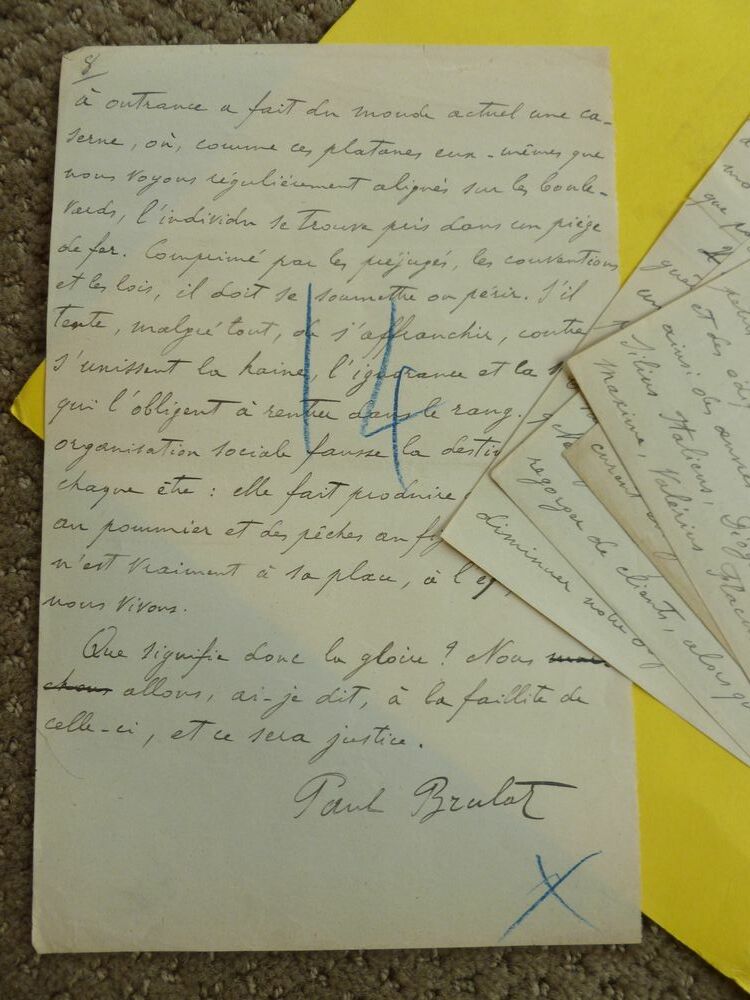 8
à outrance a fait du monde actuel une ca-
serne, où, comme ces platanes eux-mêmes que
nous voyons régulièrement alignés sur les boule-
vards, l'individu se trouve pris dans un piège
de fer. Comprimé par les préjugés, les conventions
et les lois, il doit se soumettre ou périr. S'il
tente, malgré tout, de s'affranchir, contre
s'unissent la haine, l'ignorance et la
qui l'obligent à rentrer dans le rang.
organisation sociale fausse la desti
chaque être : elle fait produire
au pommier et des pêches au fi
n'est vraiment à sa place, à l'ép
nous vivons.
Que signifie donc la gloire ? Nous
allons, ai-je dit, à la faillite de
celle-ci, et ce sera justice.
Paul Brulat
14
X
que
et des
ainsi des œuvres
Silius Italicus,
maxime, Valérius Flaccu
regorger de clients, alors qu
diminuer notre